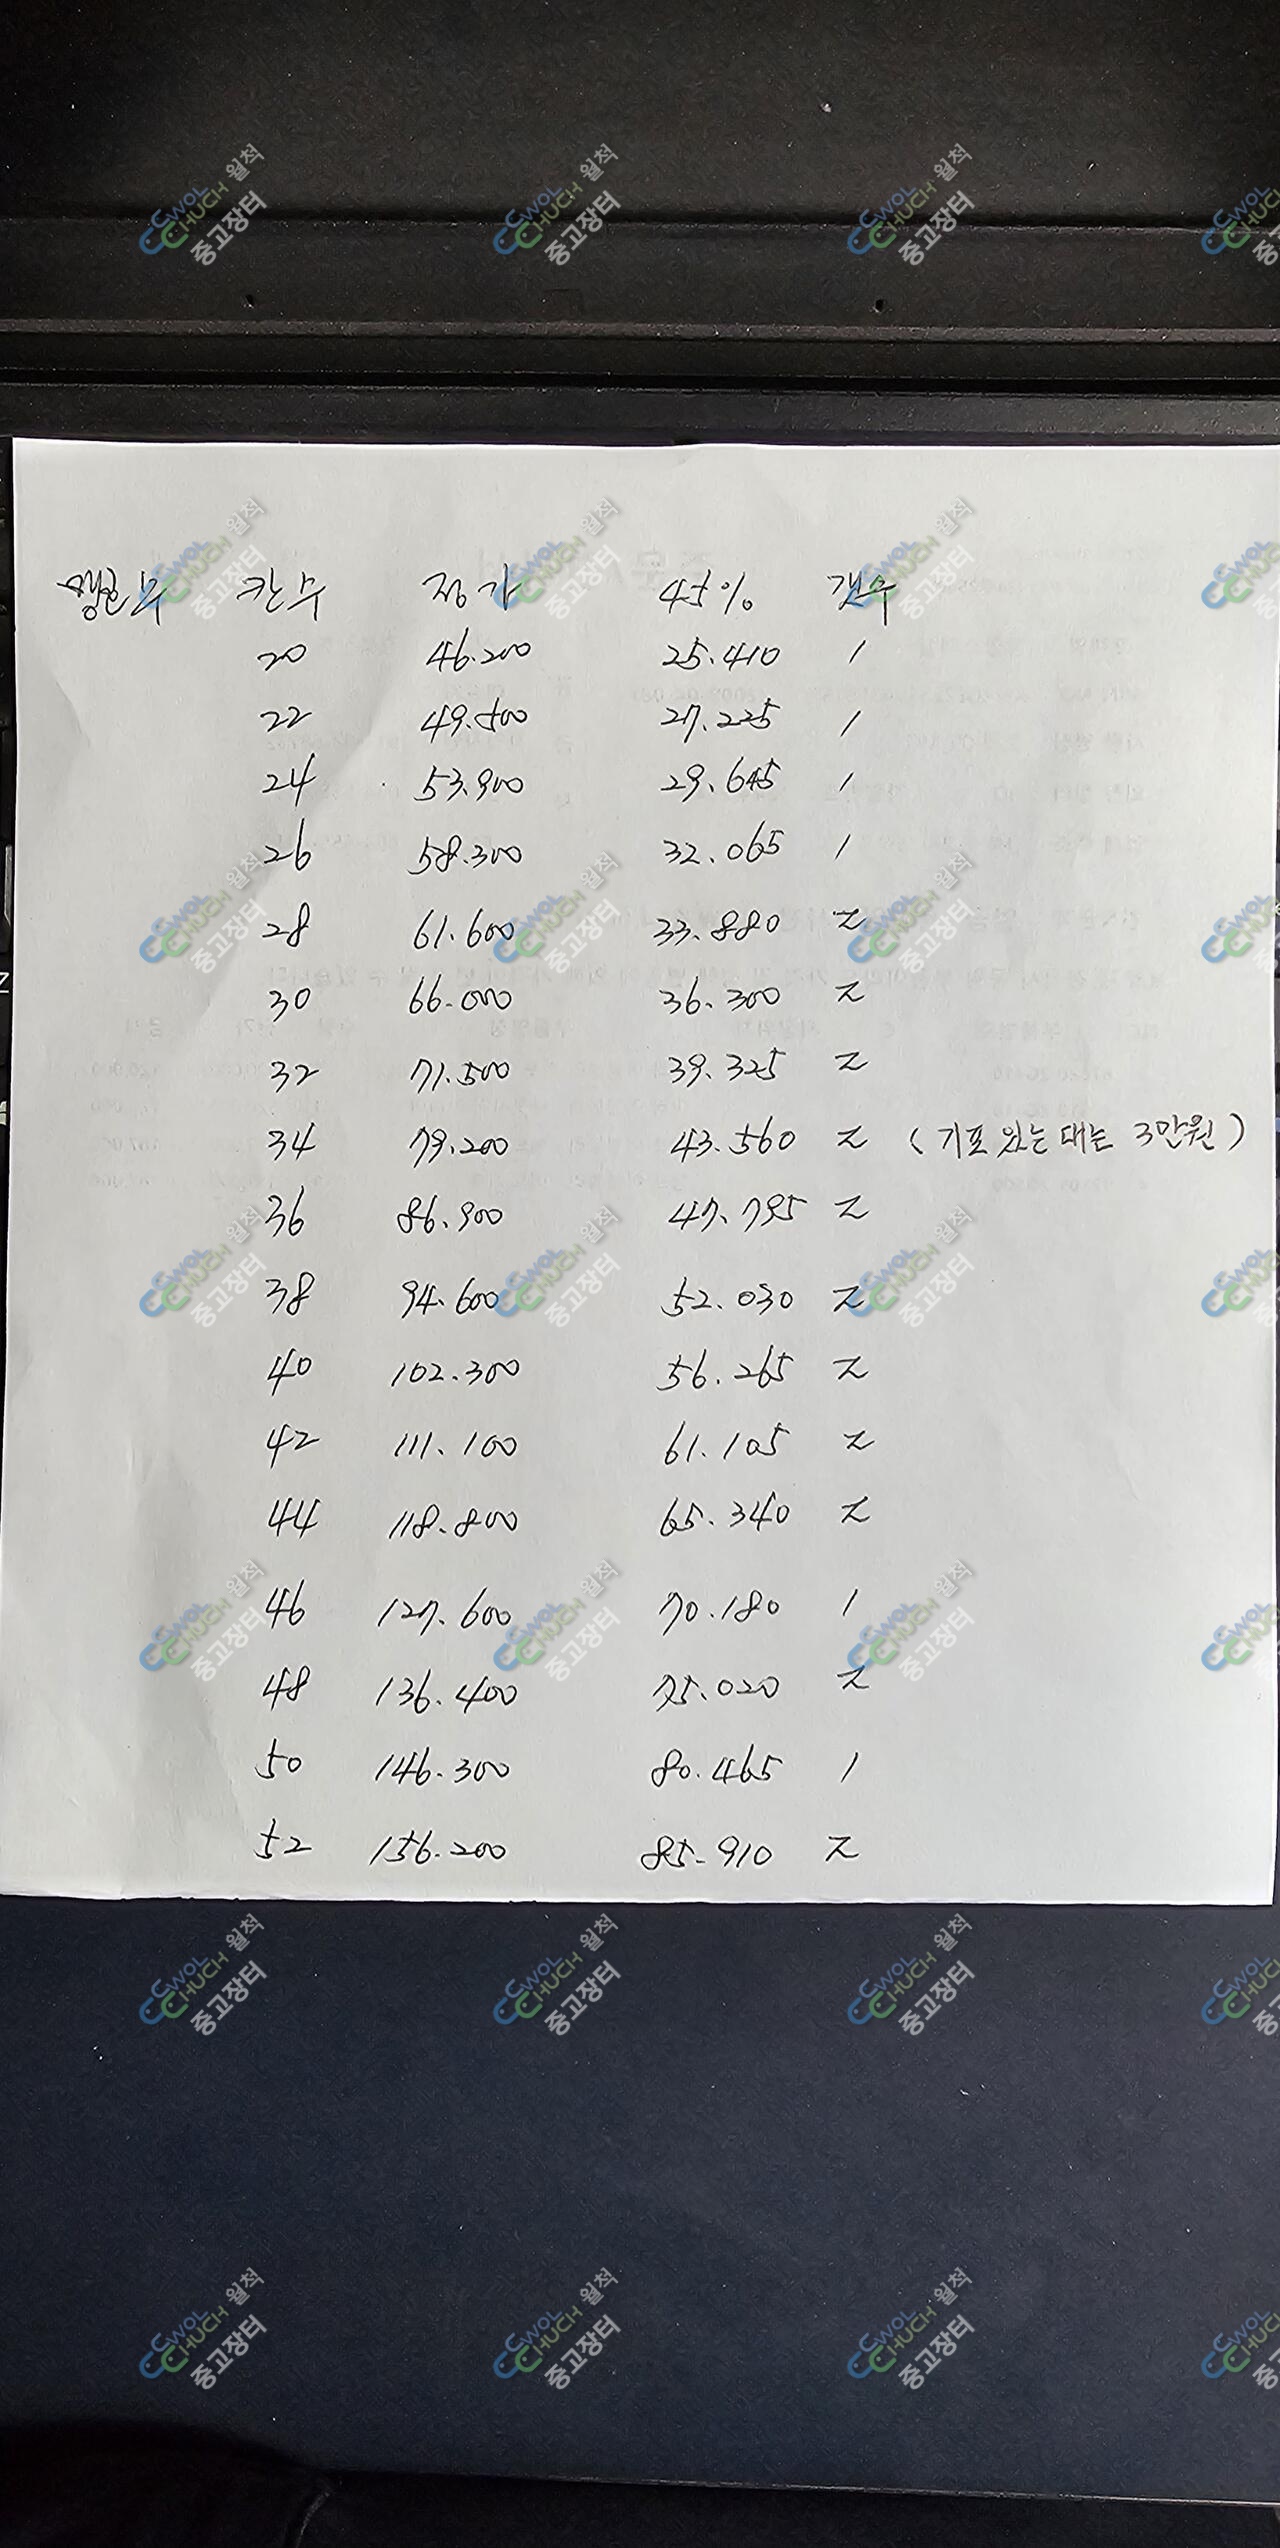 칸수 정가 45% 갯수
20 46.200 25.410 1
22 49.500 27.225 1
24 53.900 29.645 1
26 58.300 32.065 1
28 61.600 33.880 2
30 66.000 36.300 2
32 71.500 39.325 2
34 79.200 43.560 2 (기포 있는 대는 3만원)
36 86.900 47.795 2
38 94.600 52.030 2
40 102.300 56.265 2
42 111.100 61.105 2
44 118.800 65.340 2
46 127.600 70.180 1
48 136.400 75.020 2
50 146.300 80.465 1
52 156.200 85.910 2
CWOL CHUCH 월척 중고장터